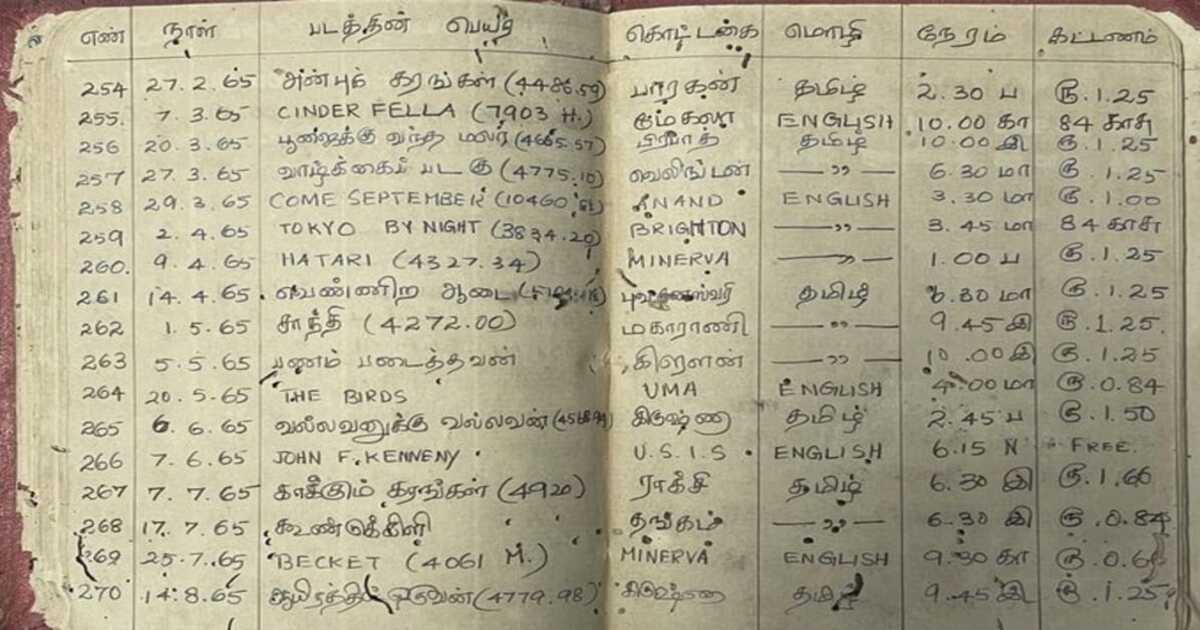 எண் நாள் படத்தின் பெயர் கொட்டகை மொழி நேரம் கட்டணம்
254 27.2.65 அன்புக் கரங்கள் (4486.59) பாரகன் தமிழ் 2.30 ப ரூ.1.25
255. 7.3.65 CINDER FELLA (7903 H.) ENGLISH 10.00 கா 84 காசு
256 20.3.65 பூஜைக்கு வந்த மலர் (4665.57) பிரபாத் தமிழ் 10.00 இ ரூ.1.25
257 27.3.65 வாழ்க்கைப் படகு (4775.10) வெலிங்டன் —— " —— 6.30 மா ரூ.1.25
258 29.3.65 COME SEPTEMBER (10460 ANAND ENGLISH 3.30 மா ரூ.1.00
259 2.4.65 TOKYO BY NIGHT (3834.20) BRIGHTON —— " —— 3.45 மா 84 காசு
260. 9.4.65 HATARI (4327.34) MINERVA —— " —— 1.00 ப ரூ.1.25
261 14.4.65 வெண்ணிற ஆடை புவனேஸ்வரி தமிழ் 6.30 மா ரூ.1.25
262 1.5.65 சாந்தி (4272.00) மகாராணி —— " —— 9.45 இ ரூ.1.25.
263 5.5.65 பணம் படைத்தவன் கிரௌன் —— " —— 10.00 இ ரூ.1.25
264 20.5.65 THE BIRDS UMA ENGLISH 4.00 மா ரூ.0.84
265 6.6.65 வல்லவனுக்கு வல்லவன் கிருஷ்ணா தமிழ் 2.45 ப ரூ.1.50
266 7.6.65 JOHN F. KENNENY U.S.I.S ENGLISH 6.15 N FREE.
267 7.7.65 காக்கும் கரங்கள் (4920) ராக்சி தமிழ் 6.30 இ ரூ.1.66
268 17.7.65 கூண்டுக்கிளி தங்கம் —— " —— 6.30 இ ரூ.0.84
269 25.7.65 BECKET (4061 M.) MINERVA ENGLISH 9.30 கா ரூ.0.66
270 14.8.65 ஆயிரத்தில் ஒருவன் (4779.98) கிருஷ்ணா தமிழ் 9.45 இ ரூ.1.25